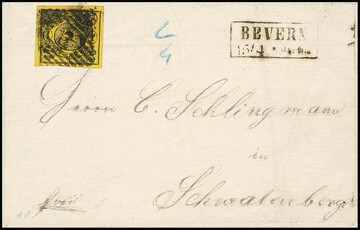 BEVERN
Herrn C. Schlingmann
in
Schwalenberg
frei